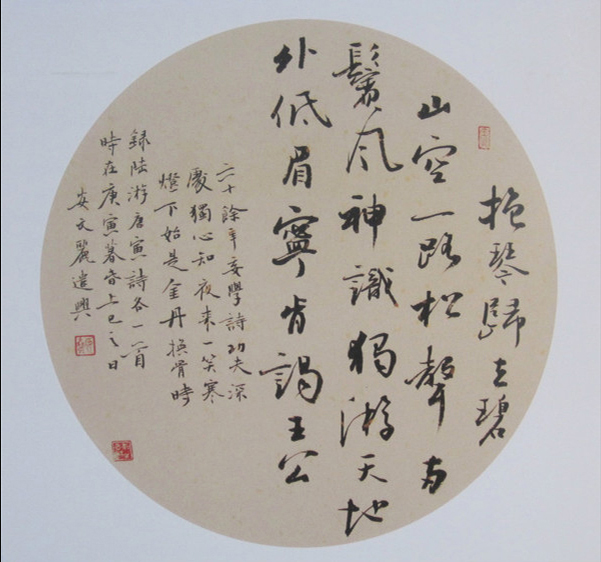 抱琴歸去碧
山空一路松聲两
鬢風神識獨游天地
外低眉寧肯謁王公
六十餘年妄學詩功夫深
處獨心知夜來一笑寒
燈下始是金丹換骨時
錄陸游唐寅詩各一首
時在庚寅暮春上巳之日
安文麗遣興